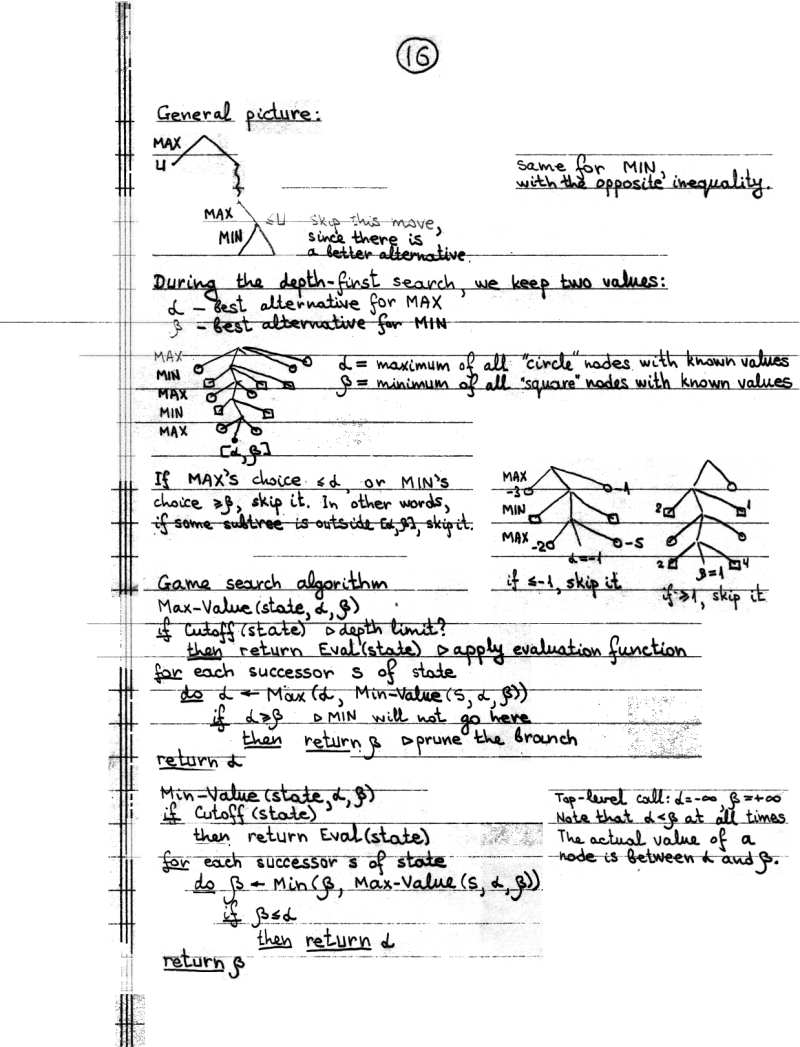 16
General picture:
MAX
4
same for MIN,
with the opposite inequality.
MAX
≤4 skip this move,
MIN
since there is
a better alternative.
During the depth-first search, we keep two values:
α – best alternative for MAX
β – best alternative for MIN
MAX
MIN
MAX
MIN
MAX
[α, β]
α = maximum of all "circle" nodes with known values
β = minimum of all "square" nodes with known values
If MAX's choice ≤α, or MIN's
choice ≥β, skip it. In other words,
if some subtree is outside [α,β], skip it.
MAX
-3 -1
MIN
MAX -2 -5
α=-1
if ≤-1, skip it
2 1
2 4
β=1
if ≥1, skip it
Game search algorithm
Max-Value(state, α, β)
if Cutoff(state) ▷ depth limit?
then return Eval(state) ▷ apply evaluation function
for each successor s of state
do α ← Max(α, Min-Value(s, α, β))
if α≥β ▷ MIN will not go here
then return β ▷ prune the branch
return α
Min-Value(state, α, β)
if Cutoff(state)
then return Eval(state)
for each successor s of state
do β ← Min(β, Max-Value(s, α, β))
if β≤α
then return α
return β
Top-level call: α=-∞, β=+∞
Note that α<β at all times
The actual value of a
node is between α and β.